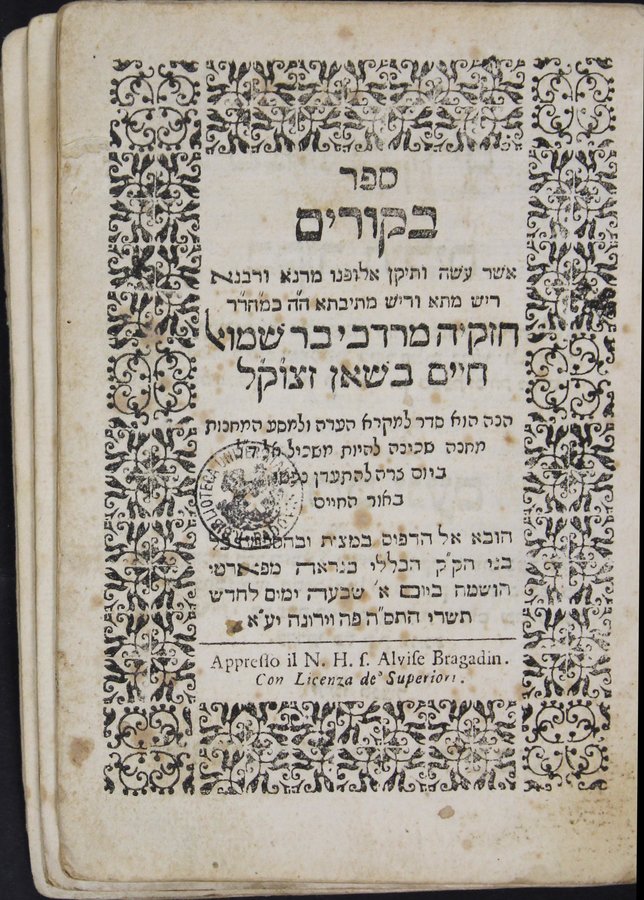 ספר
בקורים
אשר עשה ותיקן אלופנו מרנא ורבנא
ריש מתא וריש מתיבתא ה"ה כמה"ר
חזקיה מרדכי בר שמואל
חיים בשאן זצוק"ל
הנה הוא סדר למקרא העדה ולמסע המחנות
מחנה שכינה להיות משכיל אל דל
ביום צרה להתעדן
באור החיים
הובא אל הדפוס במצות
בני הק"ק הכללי
הושמה ביום א' שבעה ימים לחדש
תשרי התס"ה פה וירונה יע"א
BIBLIOTECA
Appresso il N. H. s. Alvise Bragadin.
Con Licenza de' Superiori.